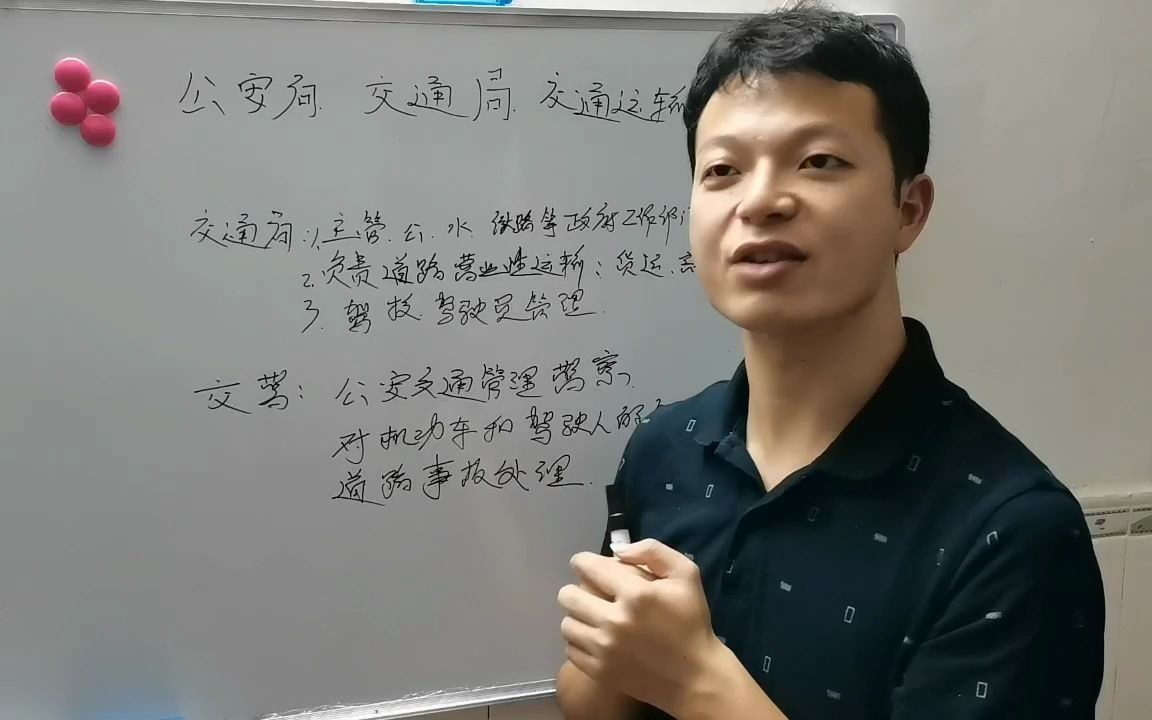 公安局 交通局 交通运输
交通局:1,主管 公、水、铁路等政府工作部门
2.负责道路营业性运输:货运、客
3.驾校.驾驶员管理.
交警:公安交通管理警察.
对机动车和驾驶人的
道路事故处理.